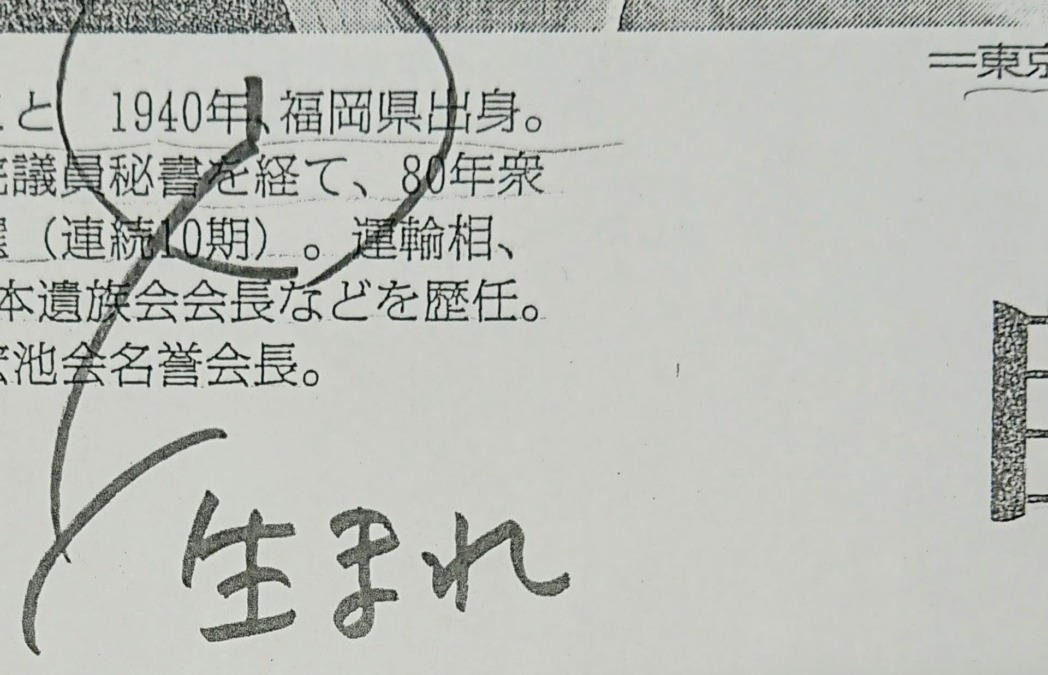 と 1940年、福岡県出身。
議員秘書を経て、80年衆
(連続10期)。運輸相、
本遺族会会長などを歴任。
池会名誉会長。
生まれ
=東京